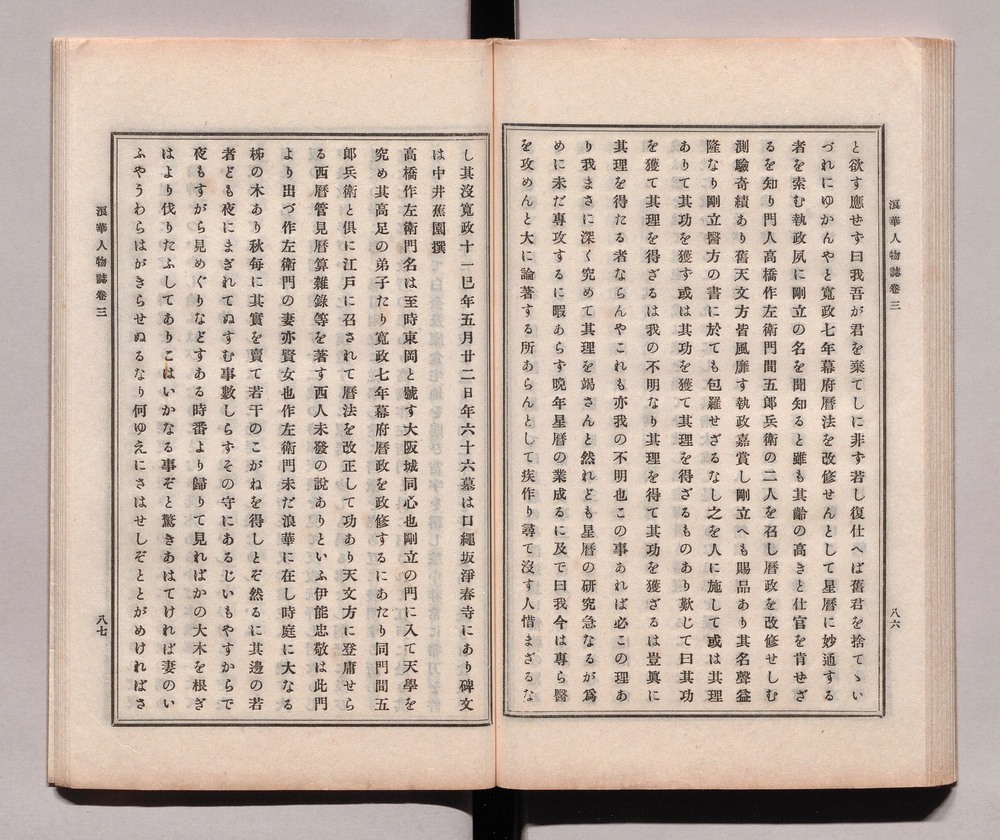 浪華人物誌卷三
八六
と欲す應せす曰我吾が君を棄てしに非す若し復仕へば舊君を捨てゝい
づれにゆかんやと寬政七年幕府曆法を改修せんとして星曆に妙通する
者を索む執政夙に剛立の名を聞知ると雖も其齡の高きと仕官を肯せざ
るを知り門人高橋作左衛門間五郎兵衛の二人を召し曆政を改修せしむ
測驗奇績あり舊天文方皆風靡す執政嘉賞し剛立へも賜品あり其名聲益
隆なり剛立醫方の書に於ても包羅せざるなし之を人に施して或は其理
ありて其功を獲す或は其功を獲て其理を得ざるものあり歎じて曰其功
を獲て其理を得ざるは我の不明なり其理を得て其功を獲ざるは豈眞に
其理を得たる者ならんやこれも亦我の不明也この事あれば必この理あ
り我まさに深く究めて其理を竭さんと然れども星曆の研究急なるが爲
めに未だ專攻するに暇あらす晩年星曆の業成るに及で曰我今は專ら醫
を攻めんと大に論著する所あらんとして疾作り尋て沒す人惜まざるな
し其沒寬政十一巳年五月廿二日年六十六墓は口繩坂淨春寺にあり碑文
は中井蕉園撰
高橋作左衛門名は至時東岡と號す大阪城同心也剛立の門に入て天學を
究め其高足の弟子たり寬政七年幕府曆政を改修するにあたり同門間五
郎兵衛と俱に江戸に召されて曆法を改正して功あり天文方に登庸せら
る西曆管見曆算雜錄等を著す西人未發の說ありといふ伊能忠敬は此門
より出づ作左衛門の妻亦賢女也作左衛門未だ浪華に在し時庭に大なる
柿の木あり秋每に其實を賣て若干のこがねを得しとぞ然るに其邊の若
者ども夜にまぎれてぬすむ事數しらすその守にあるじいもやすからで
夜もすがら見めぐりなどすある時番より歸りて見ればかの大木を根ぎ
はより伐りたふしてありこはいかなる事ぞと驚きあはてければ妻のい
ふやうわらはがきらせぬるなり何ゆえにさはせしぞととがめければさ
浪華人物誌卷三
八七